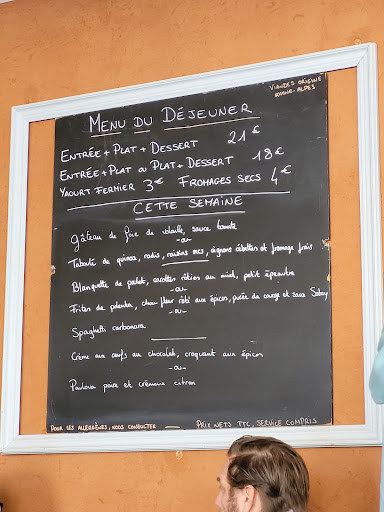 VIANDES ORIGINE
RHÔNE-ALPES
MENU DU DÉJEUNER
ENTRÉE + PLAT + DESSERT 21€
ENTRÉE + PLAT OU PLAT + DESSERT 18€
YAOURT FERMIER 3€ FROMAGES SECS 4€
CETTE SEMAINE
Gâteau de foie de volaille, sauce tomate
-ou-
Taboulé de quinoa, radis, raisins secs, oignons cébettes et fromage frais
Blanquette de poulet, carottes rôties au miel, petit épeautre
-ou-
Frites de polenta, chou-fleur rôti aux épices, purée de courge et sauce
-ou-
Spaghetti carbonara
Crème aux oeufs au chocolat, croquant aux épices
-ou-
Pavlova poire et crémeux citron
POUR LES ALLERGÈNES, NOUS CONSULTER
PRIX NETS TTC, SERVICE COMPRIS